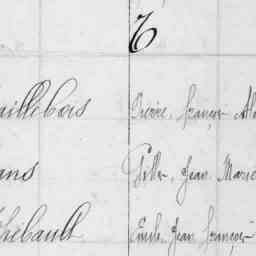 T
aillibois Pierre, françois Al
ans Gilles, Jean Marie
hébault Emile, Jean françois